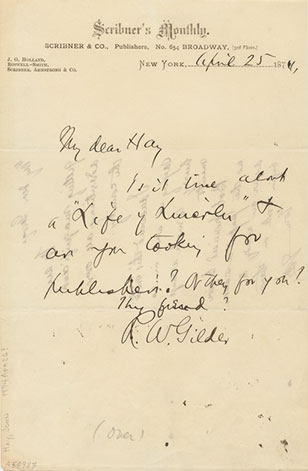 Scribner's Monthly.
SCRIBNER & CO., Publishers, No. 654 BROADWAY,
J. G. HOLLAND,
ROSWELL-SMITH,
SCRIBNER, ARMSTRONG & CO.
NEW YORK, April 25 187
My dear Hay
Is it true about
a "Life of Lincoln" &
are you looking for
publishers? Or they for you?
Thy friend?
R. W. Gilder
(over)